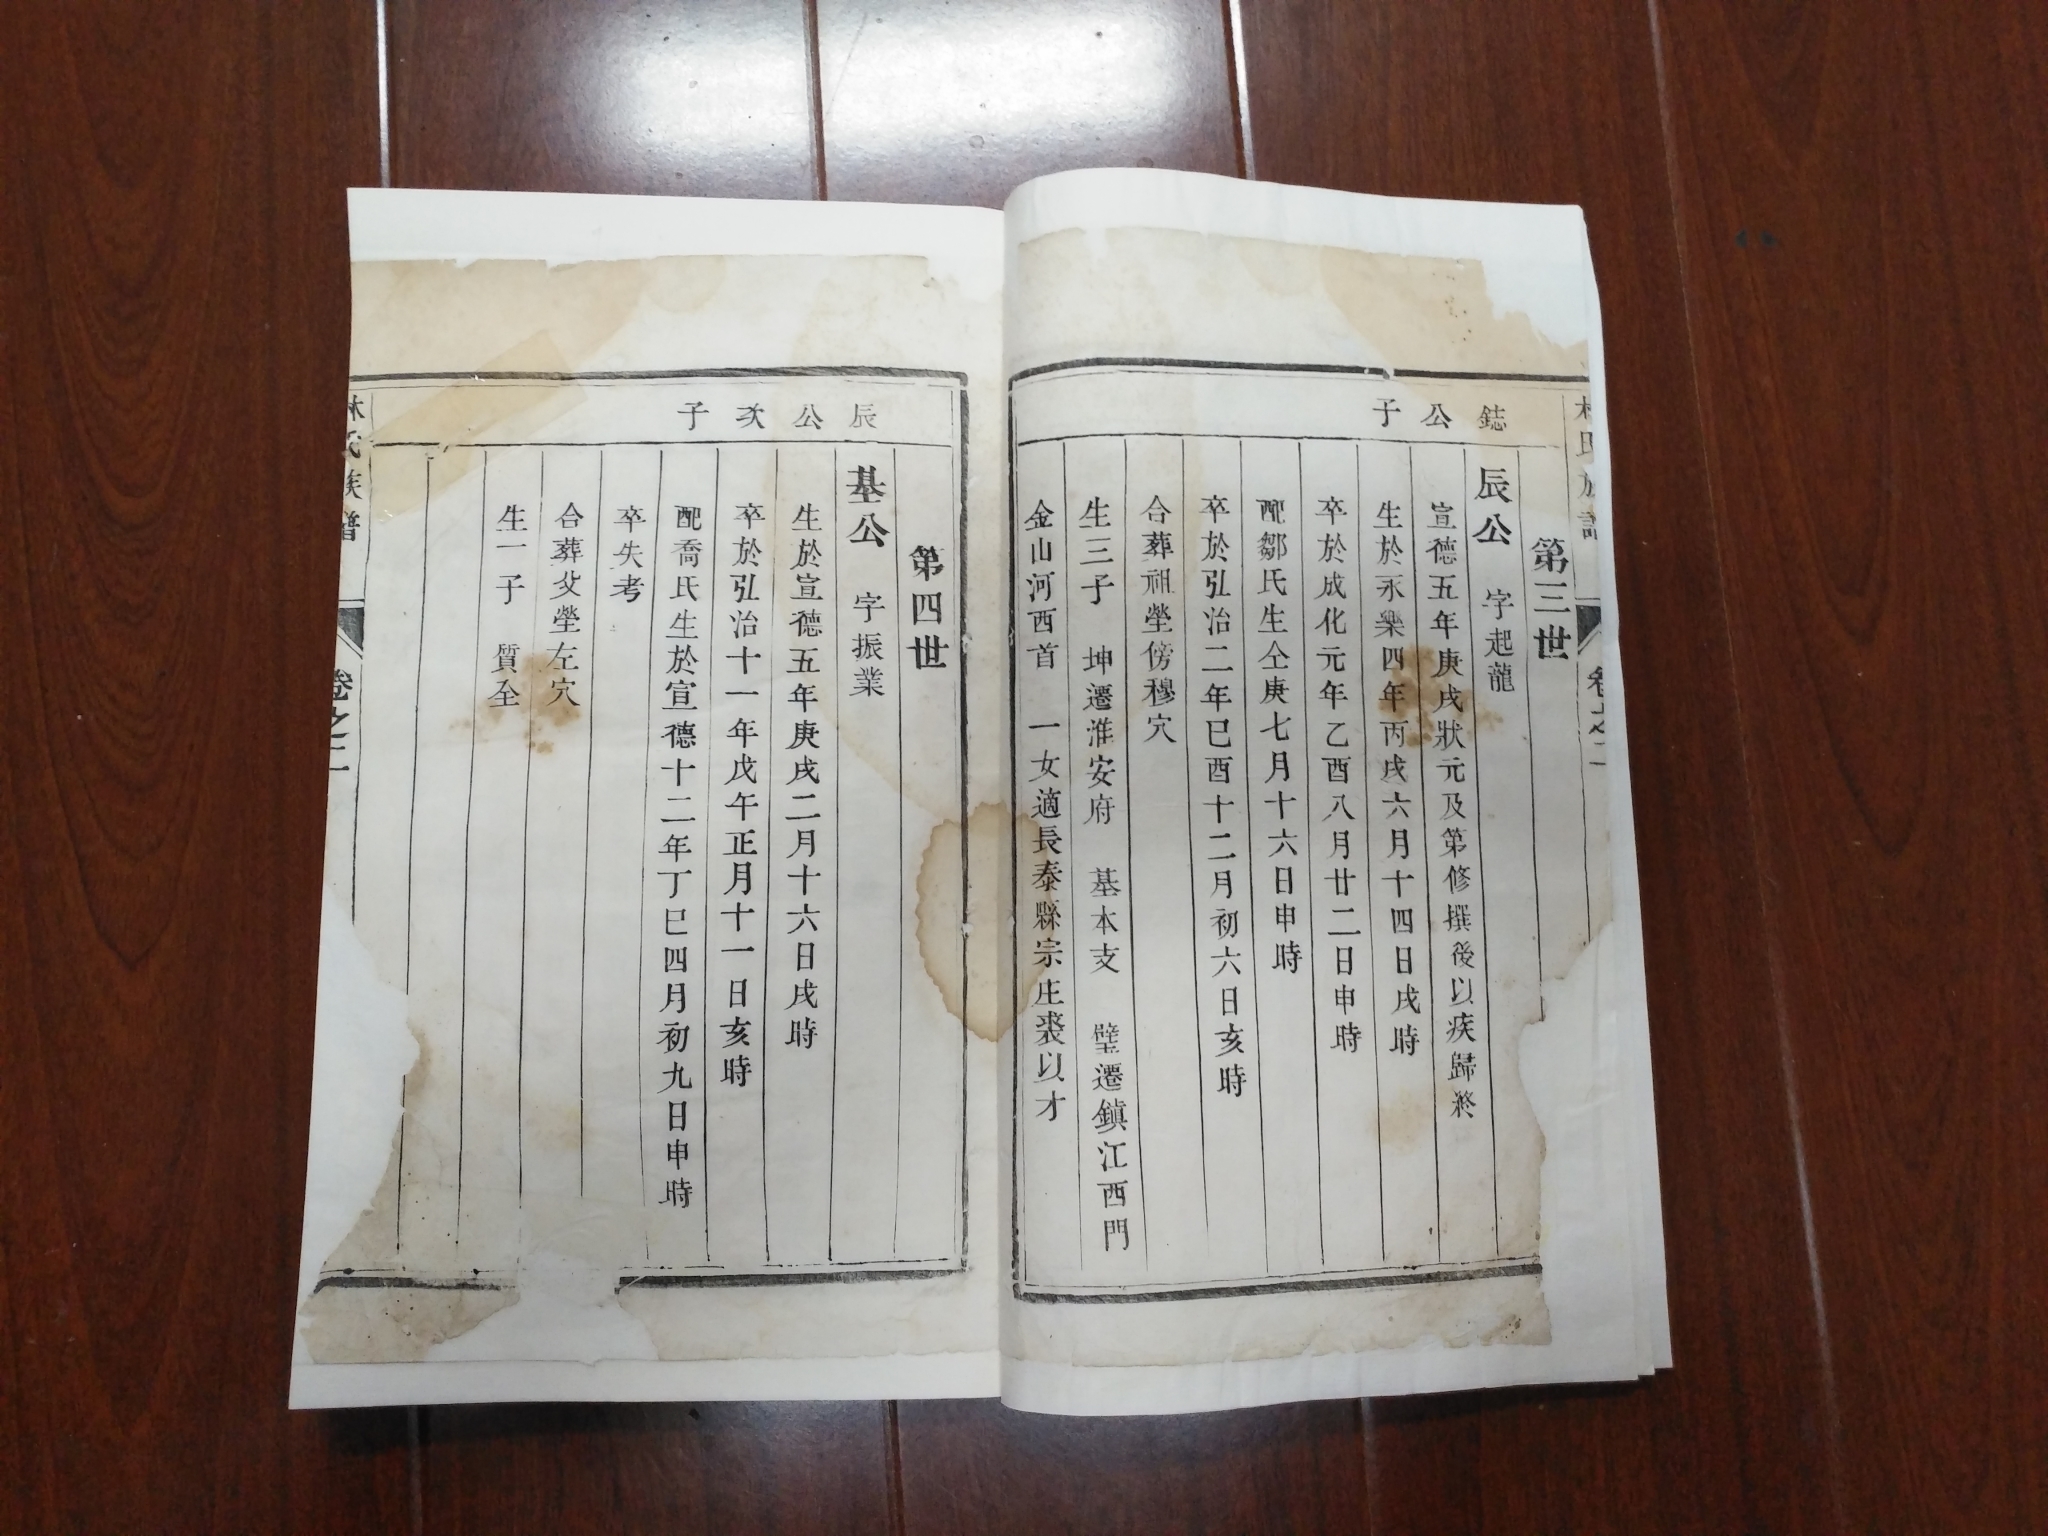 林氏族譜
卷之二
第三世
誌公子
辰公 字起龍
宣德五年庚戌狀元及第修撰後以疾歸終
生於永樂四年丙戌六月十四日戌時
卒於成化元年乙酉八月廿二日申時
配鄒氏生仝庚七月十六日申時
卒於弘治二年巳酉十二月初六日亥時
合葬祖塋傍穆穴
生三子 坤遷淮安府 基本支 璧遷鎮江西門
金山河西首 一女適長泰縣宗庄裘以才
第四世
辰公次子
基公 字振業
生於宣德五年庚戌二月十六日戌時
卒於弘治十一年戊午正月十一日亥時
配喬氏生於宣德十二年丁巳四月初九日申時
卒失考
合葬父塋左穴
生一子 質全
林氏族譜
卷之二